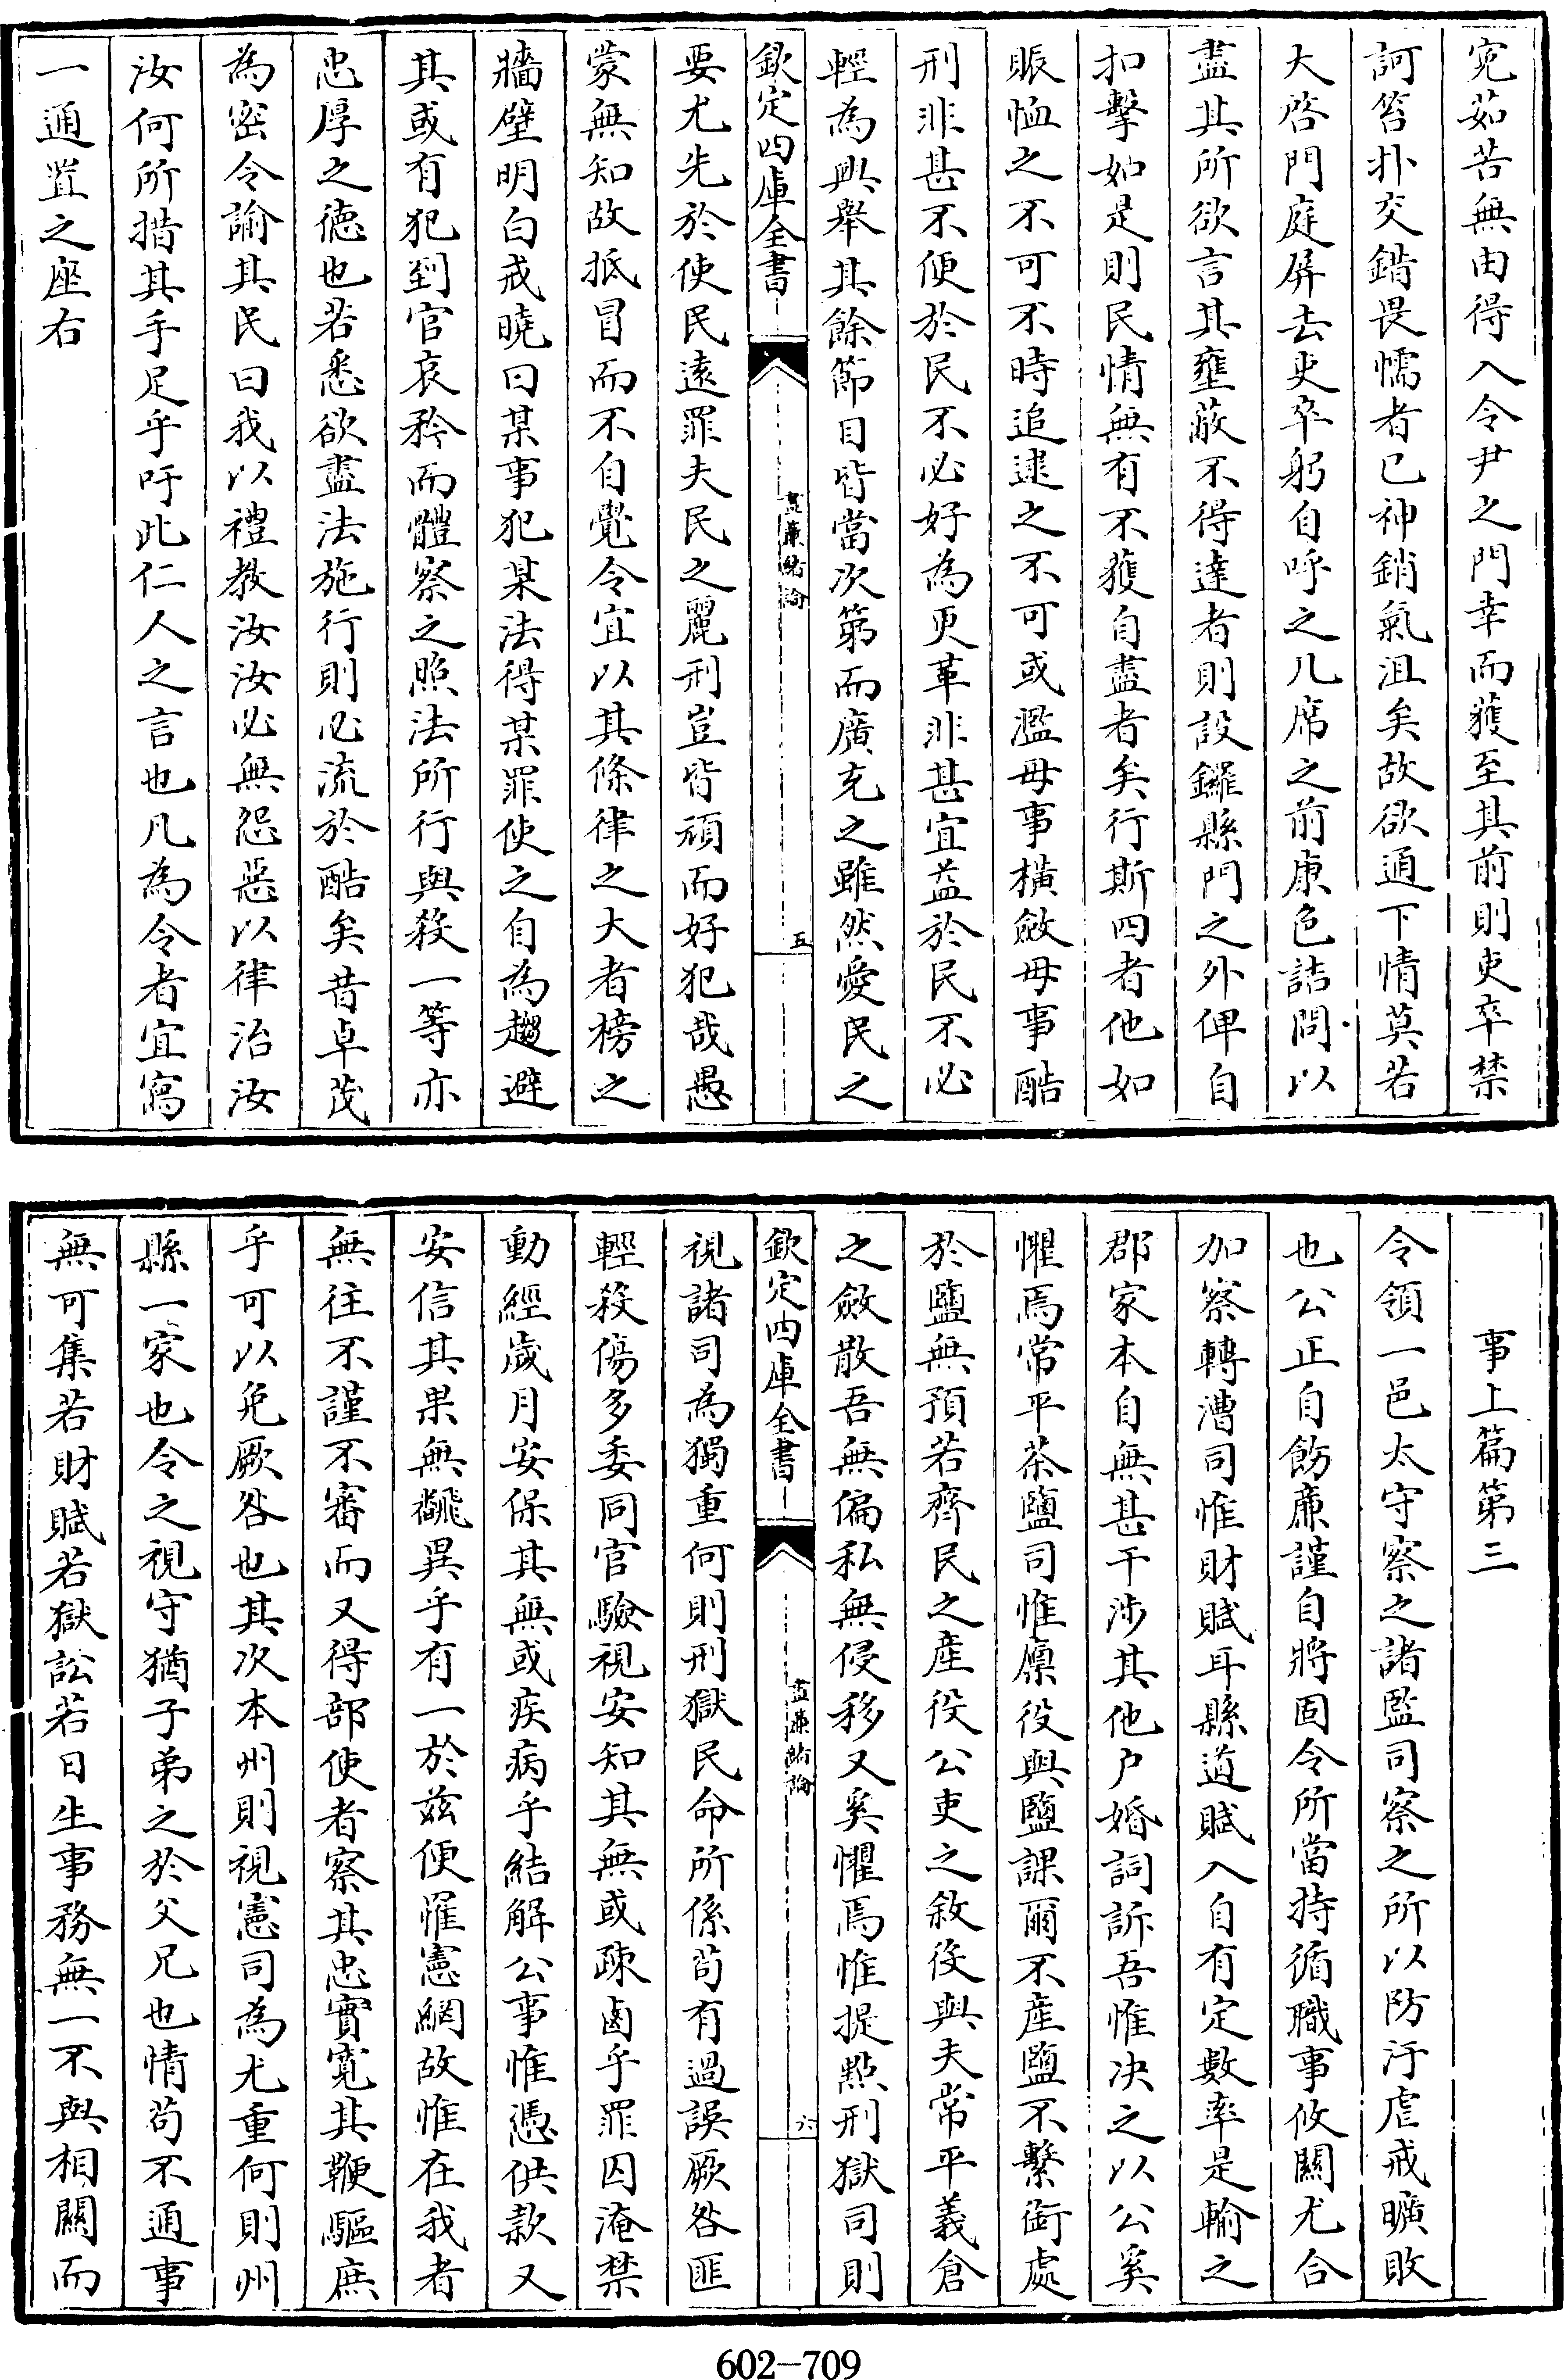 寃茹苦無由得入令尹之門幸而獲至其前則吏卒禁
訶笞扑交錯畏懦者已神銷氣沮矣故欲通下情莫若
大啓門庭屏去吏卒躬自呼之几席之前康色詰問以
盡其所欲言其壅蔽不得達者則設鑼縣門之外俾自
扣擊如是則民情無有不獲自盡者矣行斯四者他如
賑恤之不可不時追逮之不可或濫毋事橫斂毋事酷
刑非甚不便於民不必好為更革非甚宜益於民不必
輕為興舉其餘節目皆當次第而廣充之雖然愛民之
欽定四庫全書
晝簾緒論
五
要尤先於使民遠罪夫民之麗刑豈皆頑而好犯哉愚
蒙無知故抵冒而不自覺令宜以其條律之大者榜之
牆壁明白戒曉曰某事犯某法得某罪使之自為趨避
其或有犯到官哀矜而體察之照法所行與殺一等亦
忠厚之德也若悉欲盡法施行則必流於酷矣昔卓茂
為密令諭其民曰我以禮教汝汝必無怨惡以律治汝
汝何所措其手足乎吁此仁人之言也凡為令者宜寫
一通置之座右
事上篇第三
令領一邑太守察之諸監司察之所以防汙虐戒曠敗
也公正自飭廉謹自將固令所當持循職事攸關尤合
加察轉漕司惟財賦耳縣道賦入自有定數率是輸之
郡家本自無甚干涉其他户婚詞訴吾惟决之以公奚
懼焉常平茶鹽司惟廪役與鹽課爾不產鹽不繫銜處
於鹽無預若齊民之產役公吏之敘役與夫常平義倉
之斂散吾無偏私無侵移又奚懼焉惟提點刑獄司則
欽定四庫全書
晝簾緒論
六
視諸司為獨重何則刑獄民命所係茍有過誤厥咎匪
輕殺傷多委同官驗視安知其無或疎鹵乎罪囚淹禁
動經歲月安保其無或疾病乎結解公事惟憑供款又
安信其果無飜異乎有一於兹便罹憲網故惟在我者
無往不謹不審而又得部使者察其忠實寬其鞭驅庶
乎可以免厥咎也其次本州則視憲司為尤重何則州
縣一家也令之視守猶子弟之於父兄也情茍不通事
無可集若財賦若獄訟若日生事務無一不與相關而
602-709